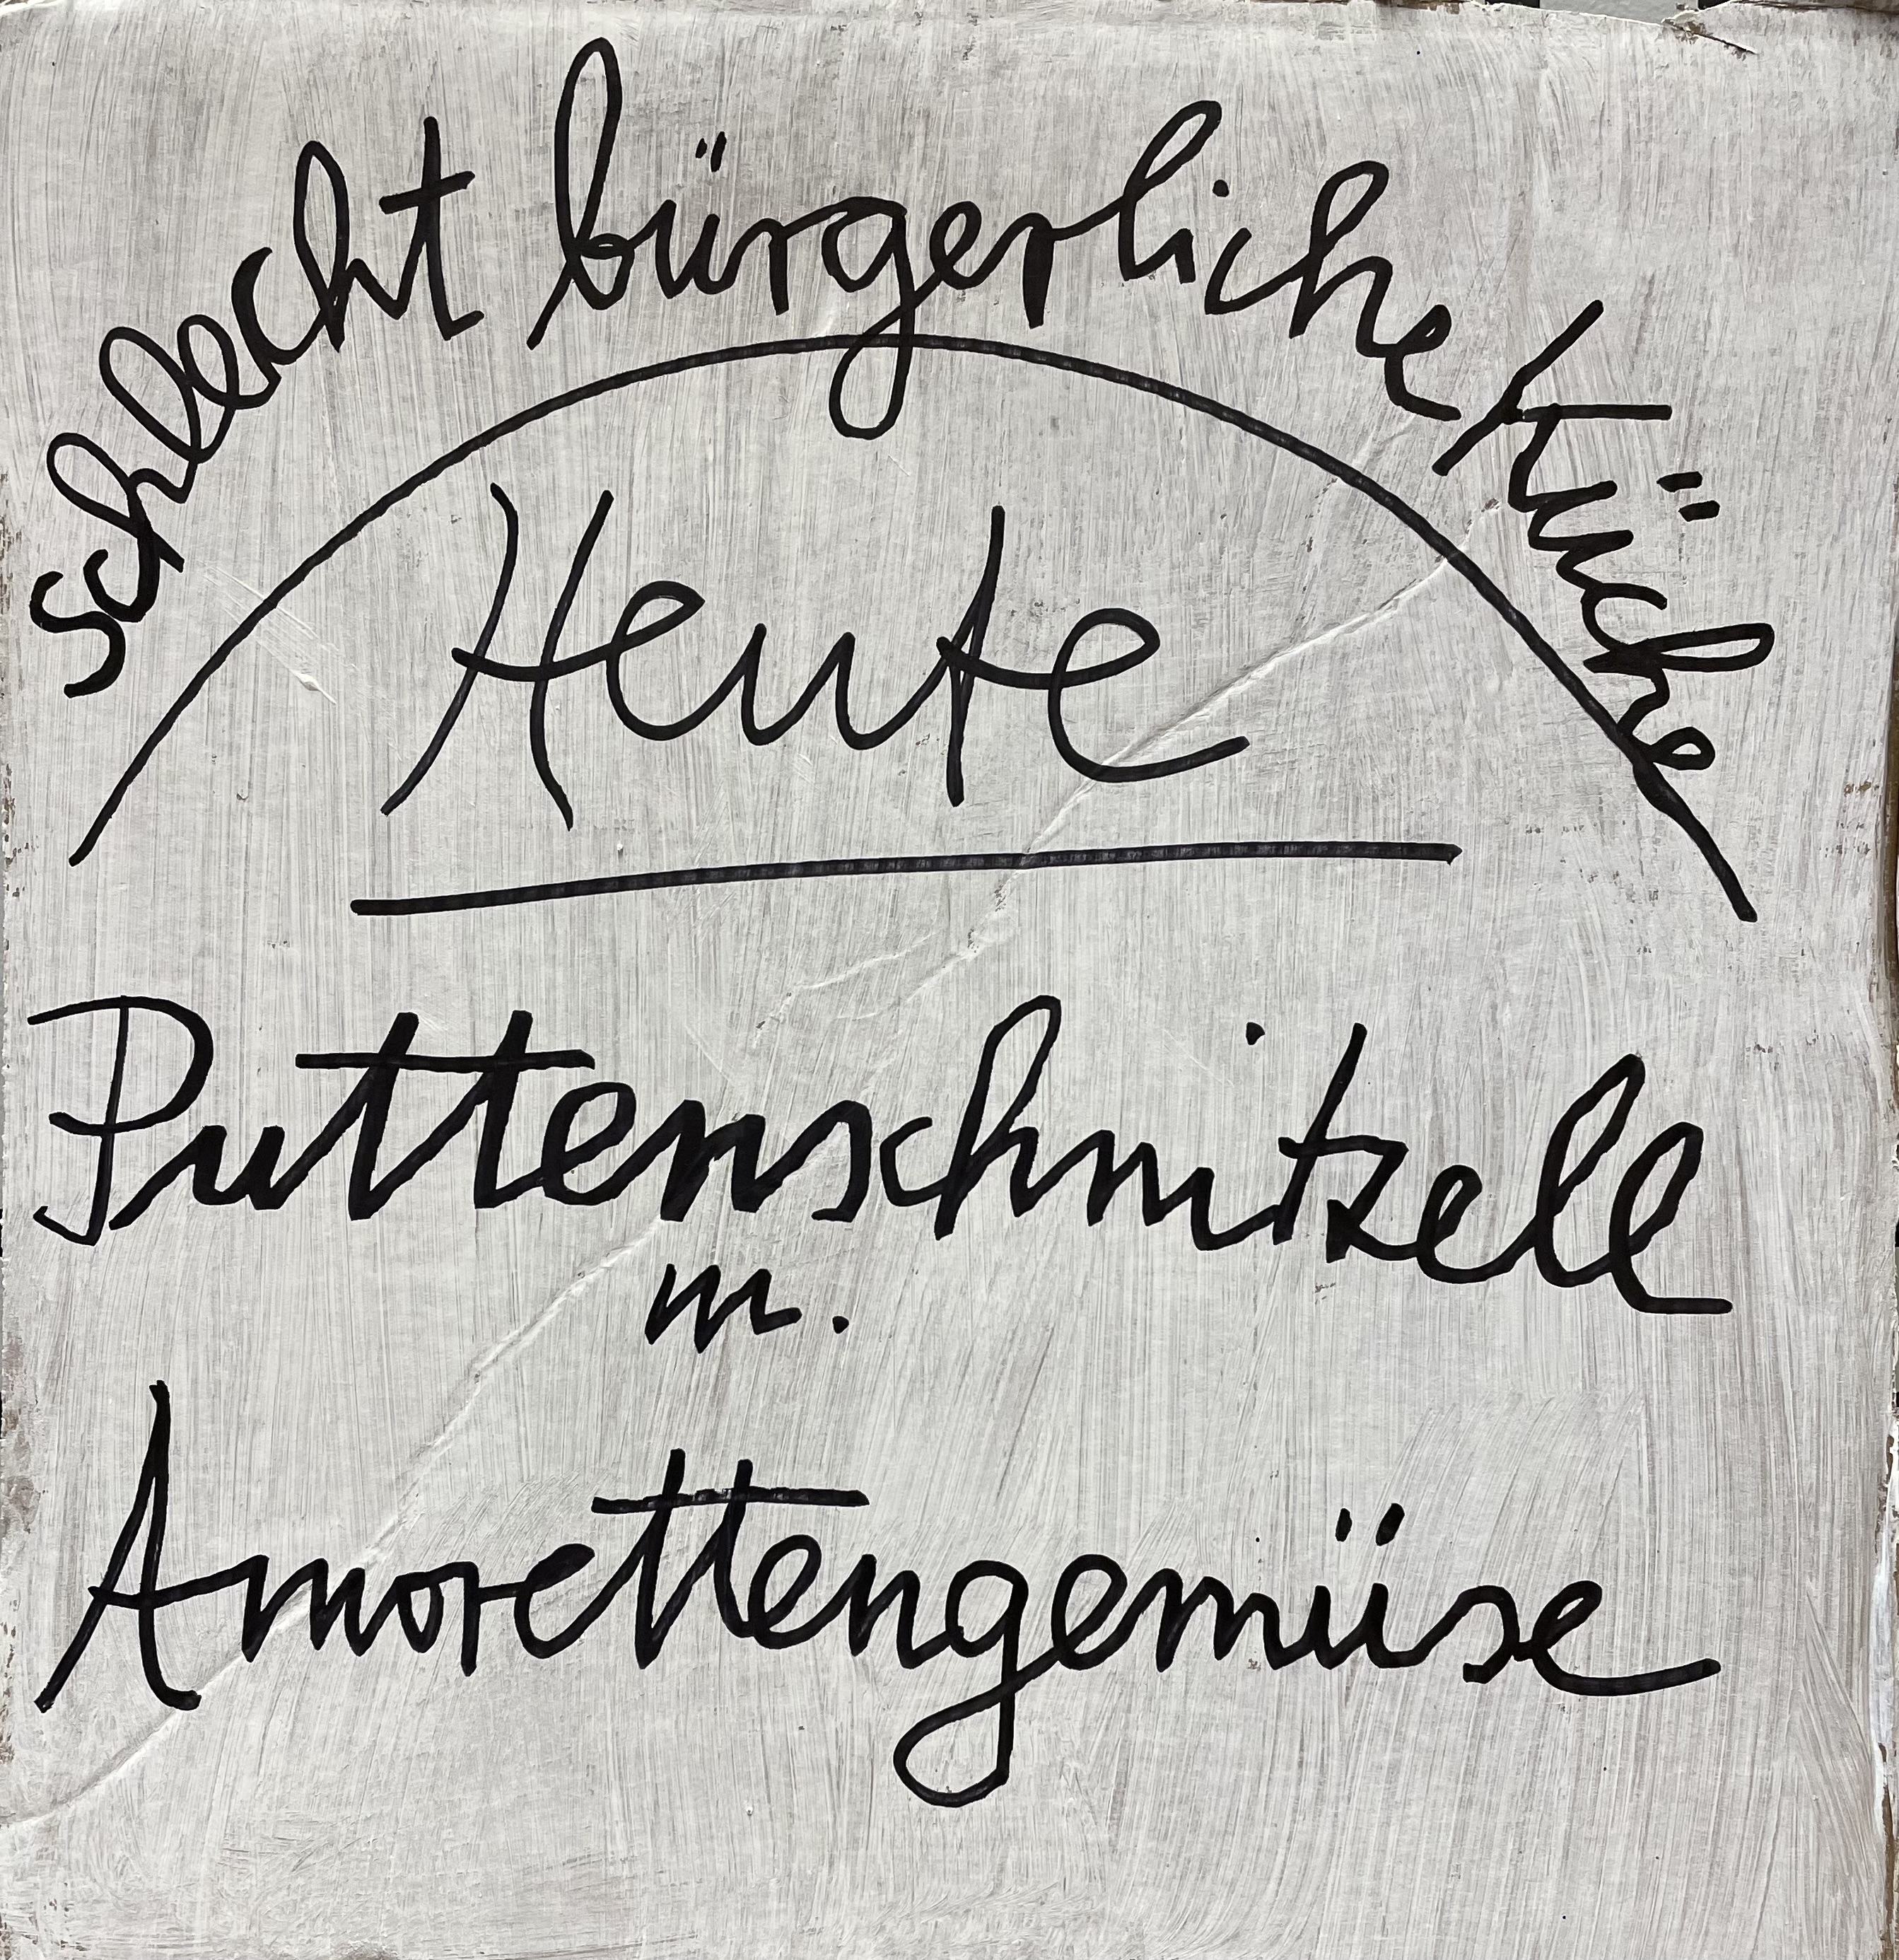 schlecht bürgerliche Küche
Heute
Puttenschnitzell
m.
Amorettengemüse